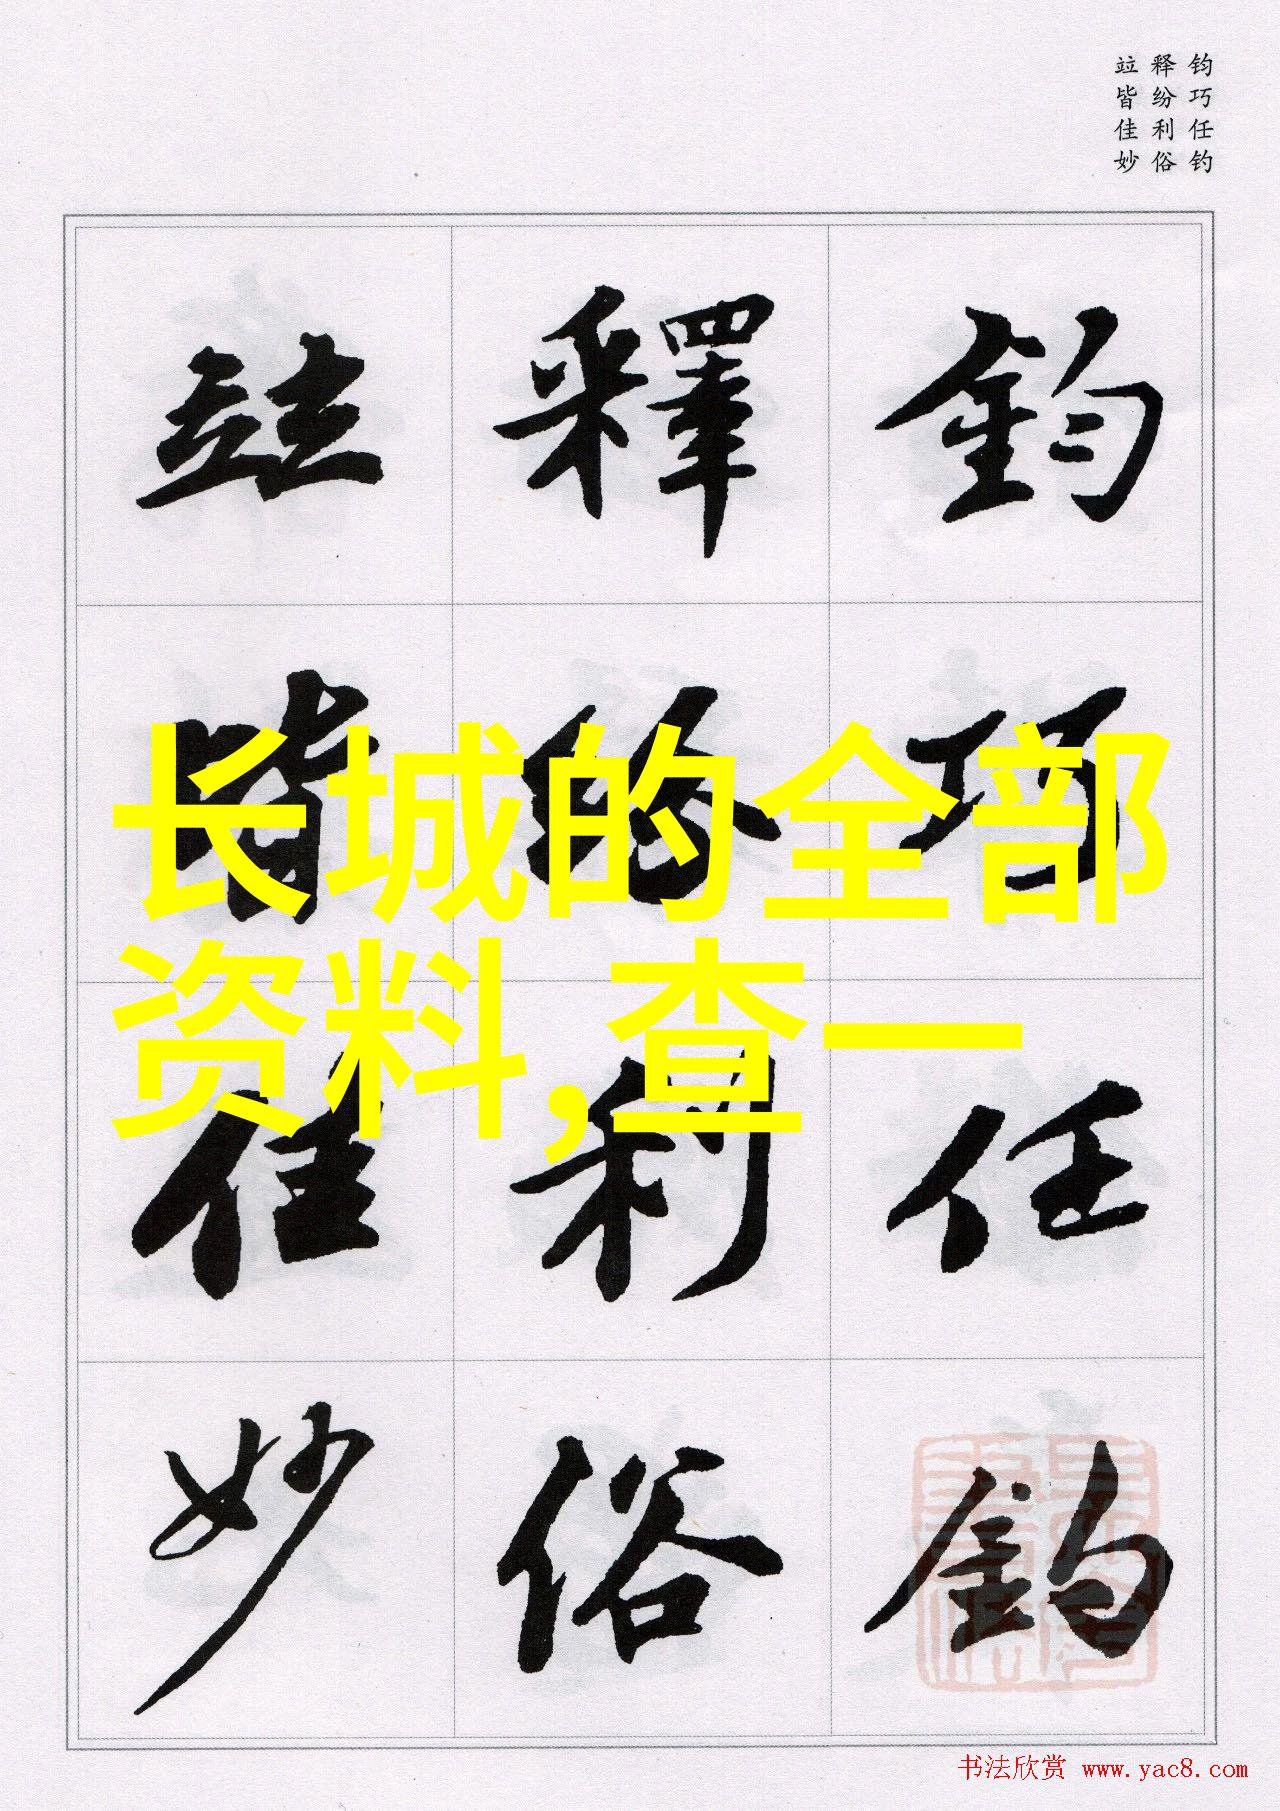 钧巧任钓
释纷利俗
竝皆佳妙
鈞巧任釣
釋紛利俗
竝皆佳妙
长城的全部
资料,查一
书法欣赏 www.yac8.com